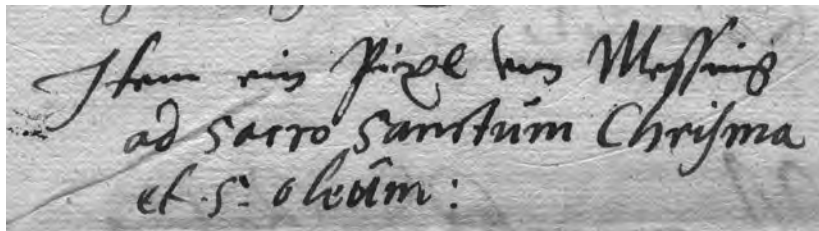 Item ein Pixl von Messing
ad sacro sanctum Chrisma
et S: oleum: